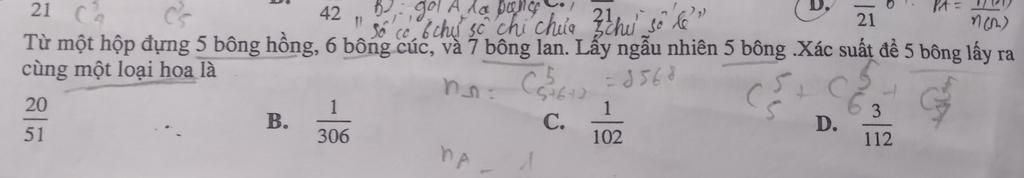 21 C 42 B) : gọi A là C. 21 D. 21 n(Ω)
"Số có 6 chữ số chỉ chứa 3 chữ số lẻ"
Từ một hộp đựng 5 bông hồng, 6 bông cúc, và 7 bông lan. Lấy ngẫu nhiên 5 bông .Xác suất để 5 bông lấy ra
cùng một loại hoa là
nΩ: C⁵₅₊₆₊₇ = 8568 C⁵₅ + C⁵₆ + C⁵₇
20/51 B. 1/306 C. 1/102 D. 3/112
nA